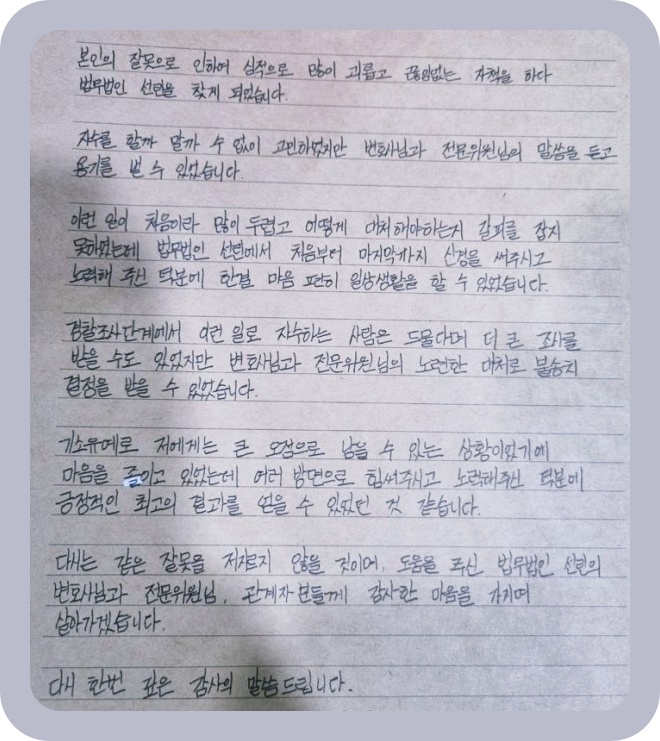 본인의 잘못으로 인하여 심적으로 많이 괴롭고 끊임없는 자책을 하다
법무법인 선린을 찾게 되었습니다.
자수를 할까 말까 수 없이 고민하였지만 변호사님과 전문위원님의 말씀을 듣고
용기를 낼 수 있었습니다.
이런 일이 처음이라 많이 두렵고 어떻게 대처해야하는지 갈피를 잡지
못하였는데 법무법인 선린에서 처음부터 마지막까지 신경을 써주시고
노력해 주신 덕분에 한결 마음 편히 일상생활을 할 수 있었습니다.
경찰조사단계에서 이런 일로 자수하는 사람은 드물다며 더 큰 조사를
받을 수도 있었지만 변호사님과 전문위원님의 노련한 대처로 불송치
결정을 받을 수 있었습니다.
기소유예로 저에게는 큰 오점으로 남을 수 있는 상황이었기에
마음을 졸이고 있었는데 여러 방면으로 힘써주시고 노력해주신 덕분에
긍정적인 최고의 결과를 얻을 수 있었던 것 같습니다.
다시는 같은 잘못을 저지르지 않을 것이며, 도움을 주신 법무법인 선린의
변호사님과 전문위원님, 관계자분들께 감사한 마음을 가지며
살아가겠습니다.
다시 한번 깊은 감사의 말씀드립니다.